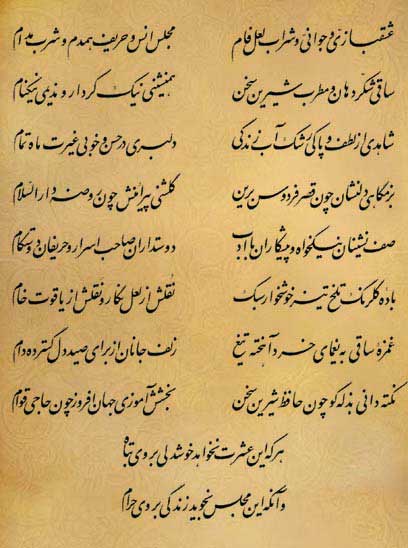 عشقبازی و جوانی و شراب لعل فام مجلس انس و حریف همدم و شرب مدام
ساقی شکر دهان و مطرب شیرین سخن همنشینی نیک کردار و ندیمی نیکنام
شاهدی از لطف و پاکی رشک آب زندگی دلبری در حسن و خوبی غیرت ماه تمام
بزمگاهی دلنشان چون قصر فردوس برین گلشنی پیرامنش چون روضه دارالسلام
صف نشینان نیکخواه و پیشکاران باادب دوستداران صاحب اسرار و حریفان دوستکام
باده گلرنگ تلخ تیز خوشخوار سبک نقلش از لعل نگار و نقلش از یاقوت خام
غمزه ساقی به یغمای خرد آهخته تیغ زلف جانان از برای صید دل گسترده دام
نکته دانی بذله گو چون حافظ شیرین سخن بخشش آموزی جهان افروز چون حاجی قوام
هر که این عشرت نخواهد خوشدلی بر وی تباه
وآنکه این مجلس نجوید زندگی بر وی حرام